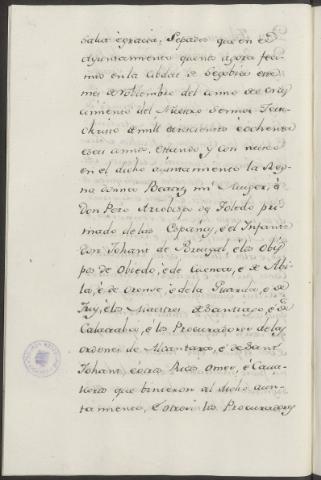 Salut é gracia, Sepades que en el
Ayuntamiento que nos agora feci-
mos en la Cibdat de Segobia en el
mes de Noviembre del anno de Nas-
cimiento del Nuestro Sennor Jesu-
christo de mill trescientos e ochenta
e seis annos, estando y con nusco
en el dicho ayuntamiento la Rey-
na donna Beatriz mi Muger, é
Don Pero Arzobispo de Toledo pri-
mado de las Espanas, é el Infante
don Johan de Portugal, é los Obis-
pos de Obiedo, é de Cuenca, é de Abi-
la, é de Orense, é de la Guardia, é de
Tuy, é los Maestres de Santiago, é de
Calatraba, é los Procuradores de las
ordenes de Alcantara, é de Sant
Johan, é otros Ricos Omes, é Caua-
lleros que binieron al dicho aiun-
tamiento, é otrosi los Procuradores